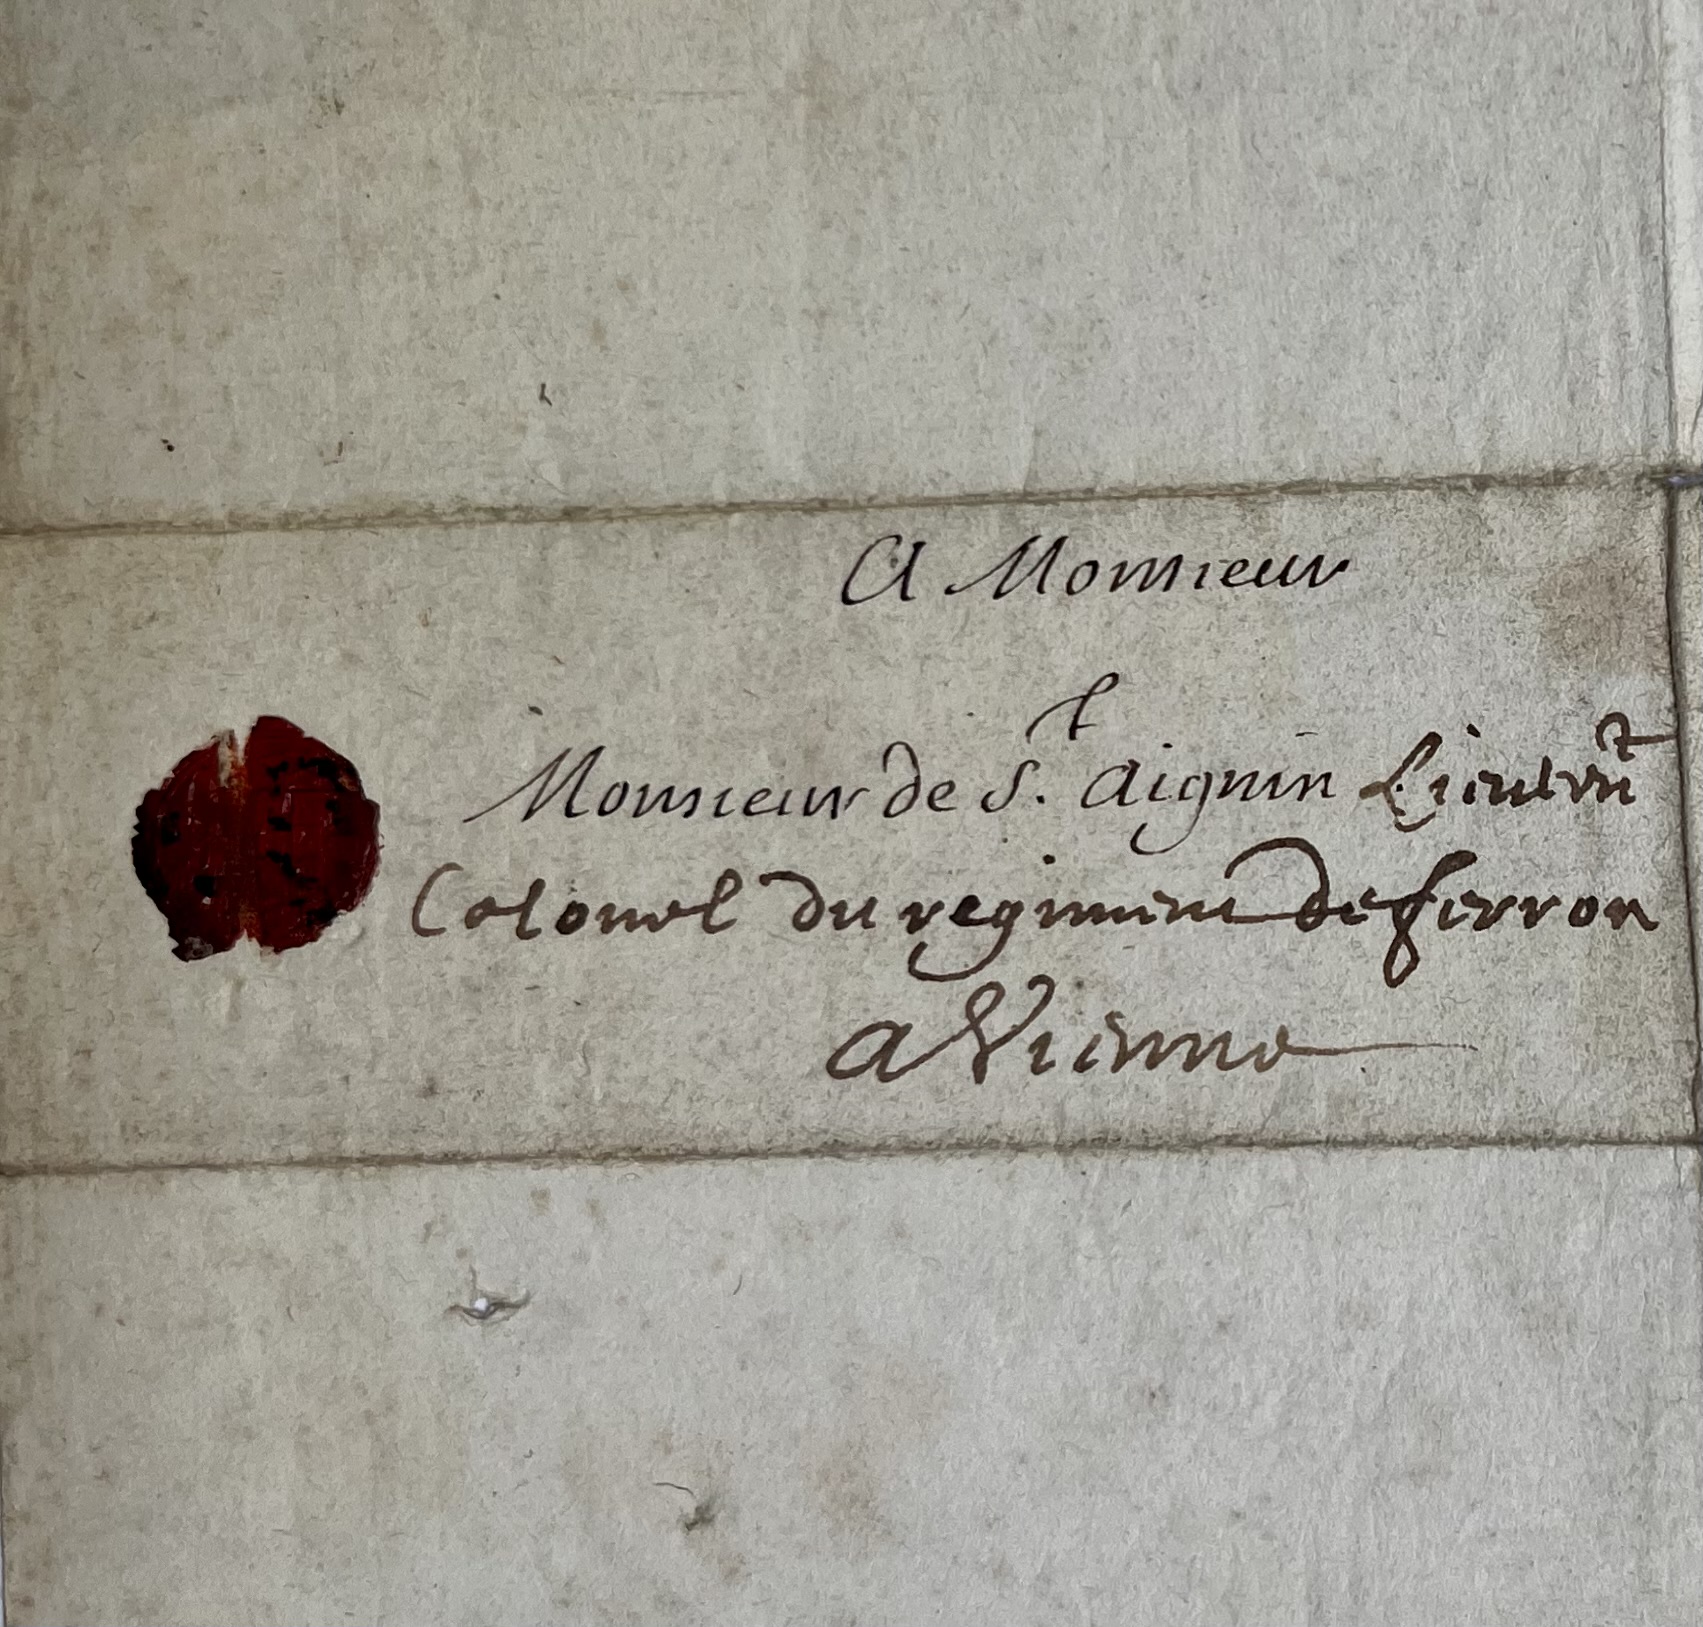 A Monsieur
Monsieur de S.t Aignin Lieutent
Colonel du regiment de fierron
a Vienne